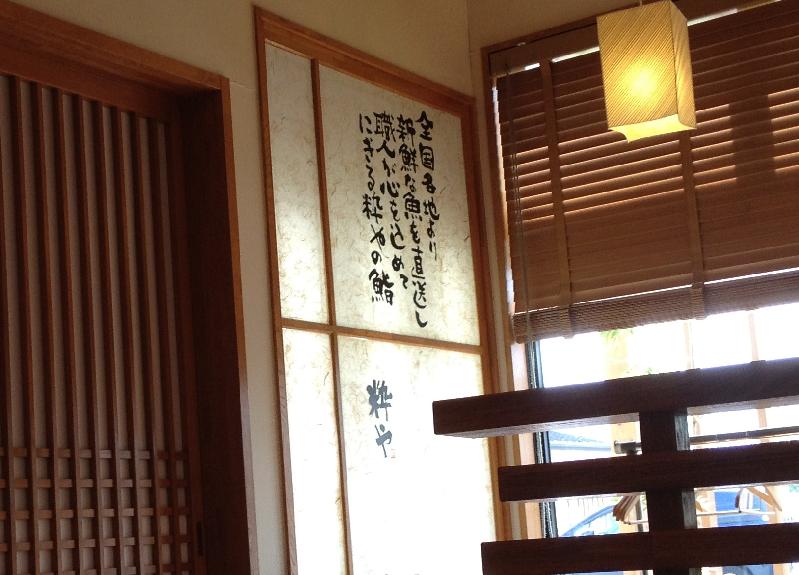 全国各地より
新鮮な魚を直送し
職人が心を込めて
にぎる粋やの鮨
粋や